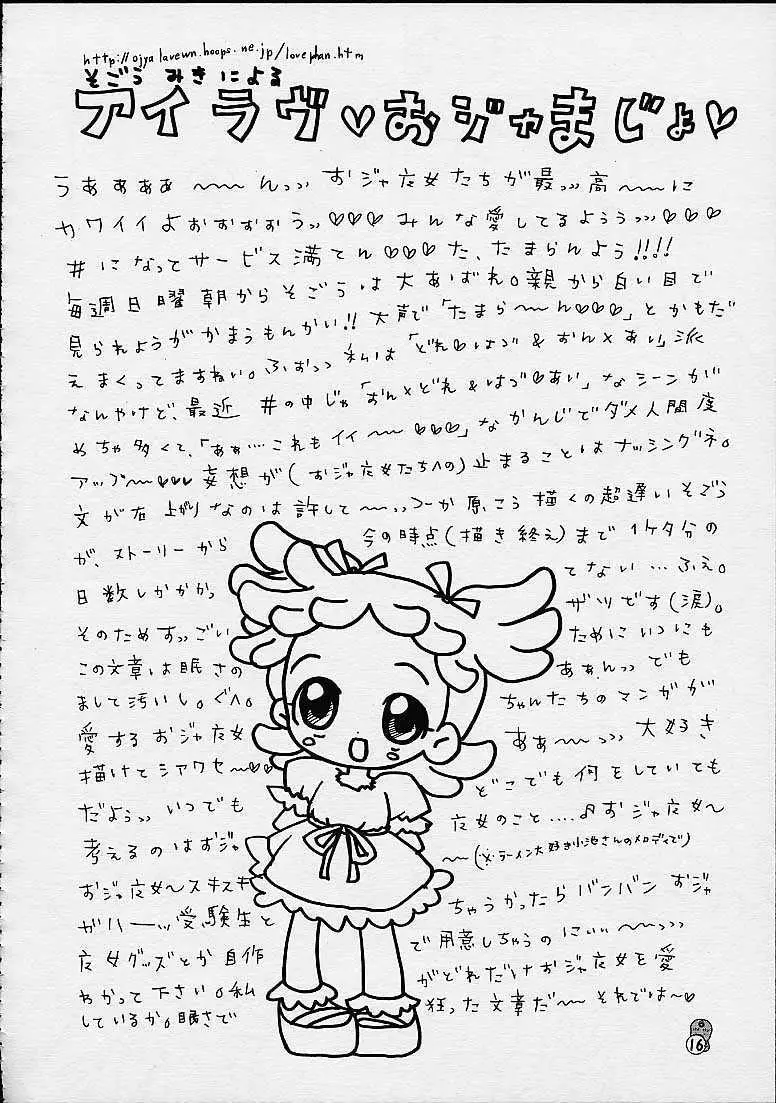 http://ojyalavewn.hoops.ne.jp/lovephan.htm
そごう みきによる
アイラヴ♡おジャまじょ♡
うぁぁぁぁ〜〜〜んっっ おジャ魔女たちが最っっ高〜〜〜に
カワイイよぉぉぉぉぉうっ♡♡♡みんな愛してるようぅっっ♡♡♡
#になってサービス満てん♡♡♡た、たまらんよう!!!!
毎週日曜朝からそごうは大あばれ。親から白い目で
見られようがかまうもんかい!! 大声で「たまら〜〜ん♡♡♡」とかもだ
えまくってますねい。ふぉっっ 私は「どれ♡はづ&おん×あい」派
なんやけど、最近 #の中じゃ「おん×どれ&はづ♡あい」なシーンが
めちゃ多くて、「あぁ…これもイイ〜〜♡♡♡」なかんじでダメ人間度
アップ〜〜♡♡♡妄想が(おジャ魔女たちへの)止まることはナッシングネ。
文が右上がりなのは許して〜〜っっつーか原こう描くの超遅いそごう
が、ストーリーから 今の時点(描き終え)まで1ケタ分の
日数しかかかっ てない…ふぇ。
そのためすっごい ザツです(涙)。
この文章は眠さの ためにいつにも
まして汚いし。ぐへ。 あぁんっっでも
愛するおジャ魔女 ちゃんたちのマンガが
描けてシアワセ〜♡♡ あぁ〜〜っっっ大好き
だようっっいつでも どこでも何をしていても
考えるのはおジャ 魔女のこと....♪おジャ魔女〜
おジャ魔女〜スキスキ 〜〜(※ラーメン大好き小池さんのメロディで)
がハーーッッ受験生と ちゃうかったらバンバンおジャ
魔女グッズとか自作 で用意しちゃうのにぃぃ〜〜っっっ
わかって下さい。私 がどれだけおジャ魔女を愛
しているか。眠さで 狂った文章だ〜〜それでは〜♡
16